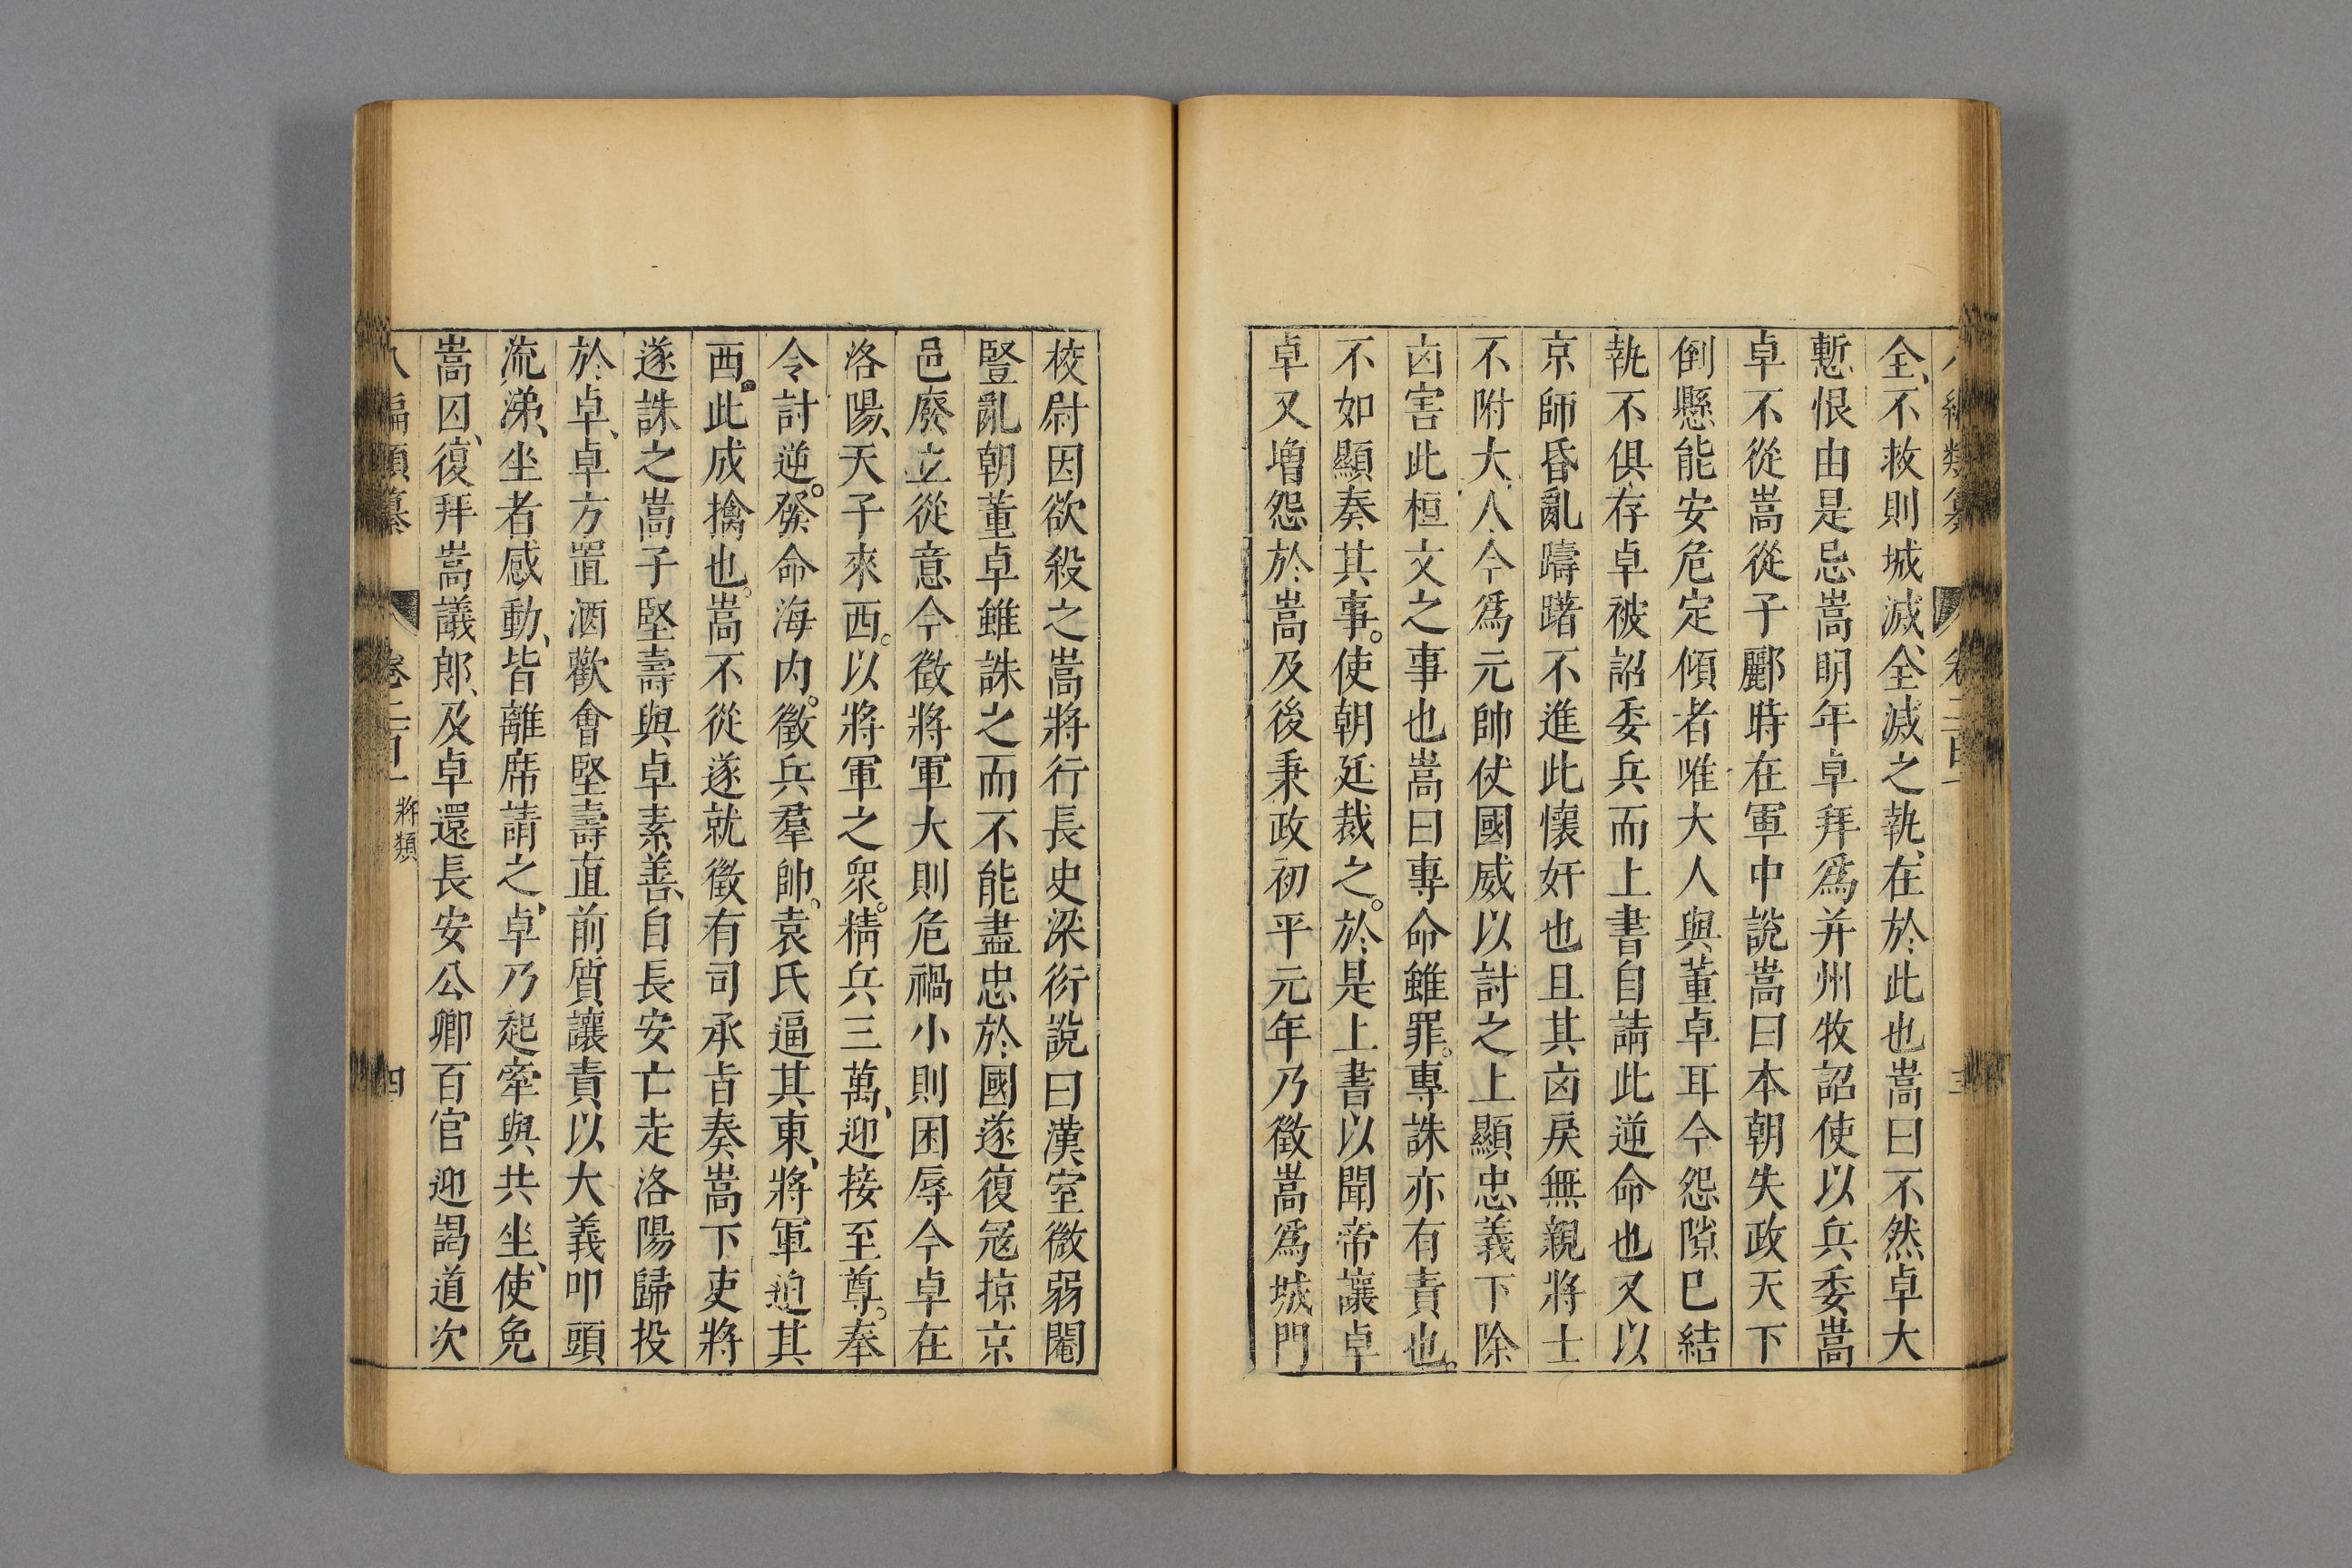 全、不救則城滅、全滅之執、在於此也嵩曰不然卓大
慙恨由是忌嵩明年卓拜爲并州牧詔使以兵委嵩
卓不從嵩從子酈時在軍中說嵩曰本朝失政天下
倒懸能安危定傾者唯大人與董卓耳今怨隙已結
執不俱存卓被詔委兵而上書自請此逆命也又以
京師昏亂躊躇不進此懷奸也且其㐫戾無親將士
不附大人今爲元帥仗國威以討之上顯忠義下除
㐫害此桓文之事也嵩曰專命雖罪。專誅亦有責也。
不如顯奏其事。使朝廷裁之。於是上書以聞帝讓卓
卓又增怨於嵩及後秉政初平元年乃徵嵩爲城門
校尉因欲殺之嵩將行長史梁衍說曰漢室微弱閹
豎亂朝董卓雖誅之而不能盡忠於國遂復冦掠京
邑廢立從意今徵將軍大則危禍小則困辱今卓在
洛陽、天子來西。以將軍之衆。精兵三萬、迎接至尊。奉
令討逆。發命海内。徵兵羣帥、袁氏逼其東、將軍迫其
西。此成擒也。嵩不從遂就徵有司承旨奏嵩下吏將
遂誅之嵩子堅壽與卓素善、自長安亡走洛陽歸投
於卓、卓方置酒歡會堅壽直前質讓責以大義叩頭
流涕、坐者感動、皆離席請之、卓乃起牽與共坐、使免
嵩囚、復拜嵩議郎、及卓還長安公卿百官迎謁道次
編類纂 卷二百一 將類 四